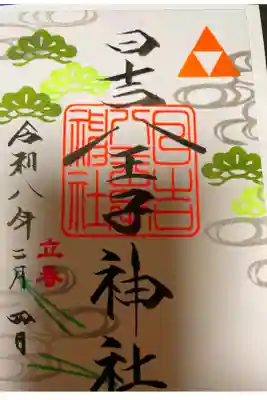 日吉八王子神社
日吉
神社
立春
令和八年二月四日